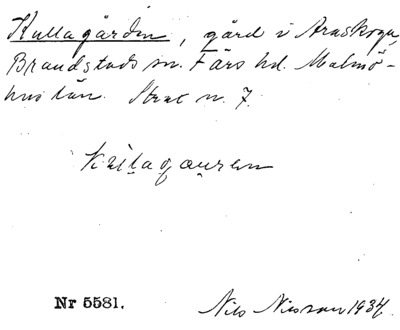 Kullagården, gård i Araskoga,
Brandstads sn. Färs hd. Malmö-
hus län. Strax n. 7.
Nr 5581.
Nils Nilsson 1934